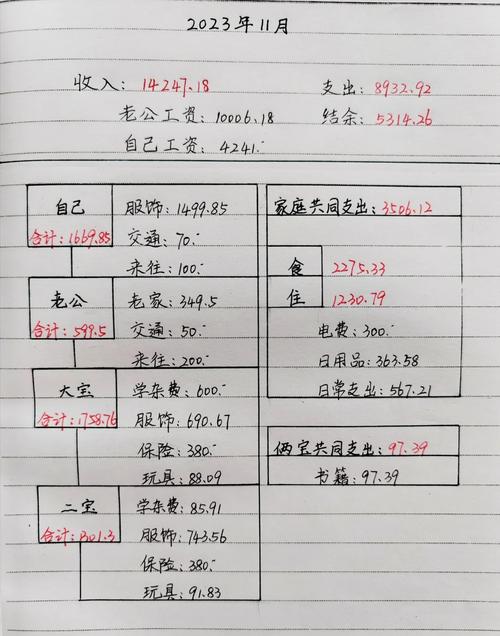 2023年11月
收入: 14247.18
支出: 8932.92
老公工资: 10006.18
结余: 5314.26
自己工资: 4241.-
自己
合计: 1669.85
服饰: 1499.85
交通: 70.-
来往: 100.-
老公
合计: 599.5
老家: 349.5
交通: 50.-
来往: 200.-
大宝
合计: 1758.76
学杂费: 600.-
服饰: 690.67
保险: 380.-
玩具: 88.09
二宝
合计: 1301.3
学杂费: 85.91
服饰: 743.56
保险: 380.-
玩具: 91.83
家庭共同支出: 3506.12
食 2275.33
住 1230.79
电费: 300.-
日用品: 363.58
日常支出: 567.21
俩宝共同支出: 97.39
书籍: 97.39